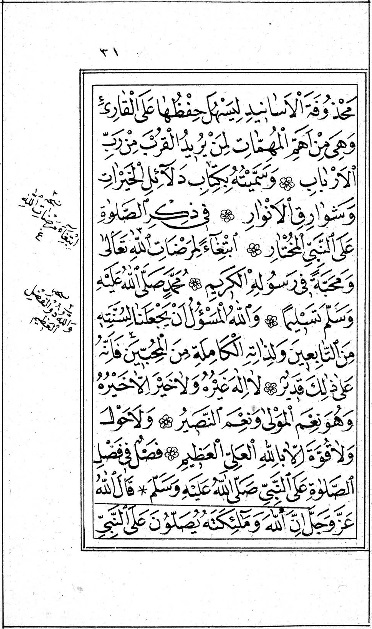 ٣١
مَحْذُوفَةَ الْاَسَانِيدِ لِيَسْهُلَ حِفْظُهَا عَلَى الْقَارِئِ
وَهِيَ مِنْ اَهَمِّ الْمُهِمَّاتِ لِمَنْ يُرِيدُ الْقُرْبَ مِنْ رَبِّ
الْاَرْبَابِ ۞ وَسَمَّيْتُهُ بِكِتَابِ دَلَآئِلِ الْخَيْرَاتِ
وَشَوَارِقِ الْاَنْوَارِ ۞ فِي ذِكْرِ الصَّلوٰةِ
عَلَى النَّبِيِّ الْمُخْتَارِ ۞ اِبْتِغَاءً لِمَرْضَاتِ اللهِ تَعَالَى
وَمَحَبَّةً فِي رَسُولِهِ الْكَرِيمِ ۞ مُحَمَّدٍ صَلَّى اللهُ عَلَيْهِ
وَسَلَّمَ تَسْلِيمًا ۞ وَاللهُ الْمَسْؤُلُ اَنْ يَجْعَلَنَا لِسُنَّتِهِ
مِنَ التَّابِعِينَ وَلِذَاتِهِ الْكَامِلَةِ مِنَ الْمُحِبِّينَ فَاِنَّهُ
عَلَى ذٰلِكَ قَدِيرٌ ۞ لَا اِلٰهَ غَيْرُهُ وَلَا خَيْرَ اِلَّا خَيْرُهُ
وَهُوَ نِعْمَ الْمَوْلَى وَنِعْمَ النَّصِيرُ ۞ وَلَا حَوْلَ
وَلَا قُوَّةَ اِلَّا بِاللهِ الْعَلِيِّ الْعَظِيمِ ۞ فَصْلٌ فِي فَضْلِ
الصَّلوٰةِ عَلَى النَّبِيِّ صَلَّى اللهُ عَلَيْهِ وَسَلَّمَ * قَالَ اللهُ
عَزَّ وَجَلَّ اِنَّ اللهَ وَمَلٰٓئِكَتَهُ يُصَلُّونَ عَلَى النَّبِيِّ
ابتغاء مرضات الله
والله ذو الفضل
العظيم